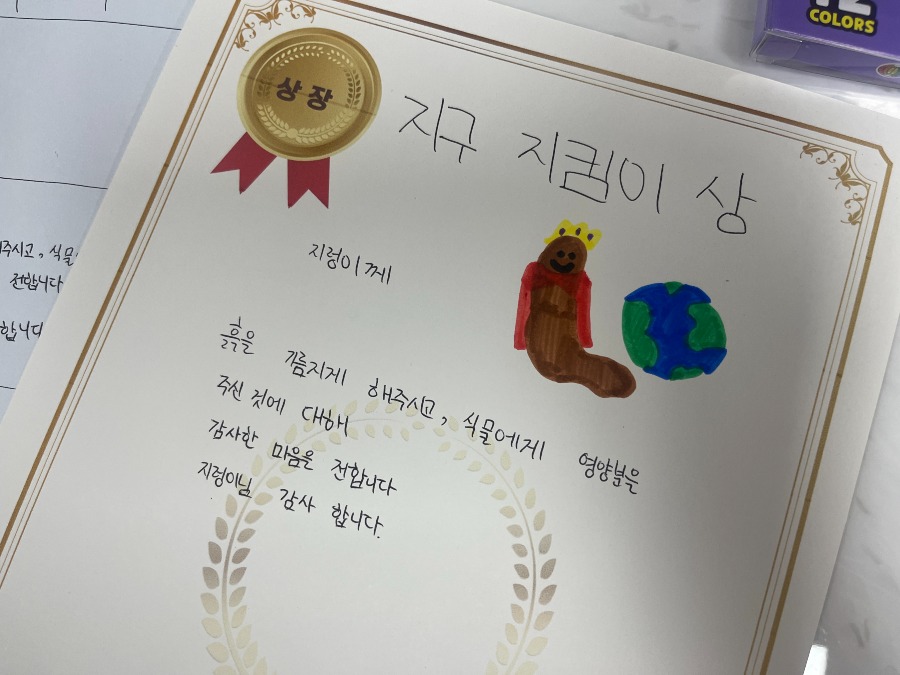 COLORS
상장
지구 지킴이 상
지렁이께
흙을 기름지게 해주시고, 식물에게 영양분을
주신 것에 대해
감사한 마음은 전합니다
지렁이님 감사 합니다.
주시고, 식물
전합니다
합니다